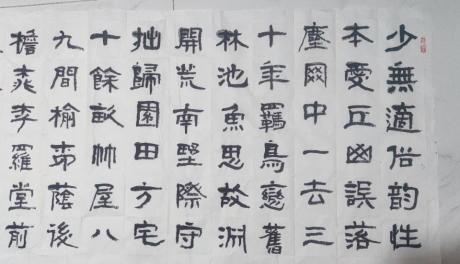 少無適俗韵性
本愛丘山誤落
塵网中一去三
十年羈鳥戀舊
林池魚思故淵
開荒南野際守
拙歸園田方宅
十餘畝艸屋八
九間榆柳蔭後
檐桃李羅堂前